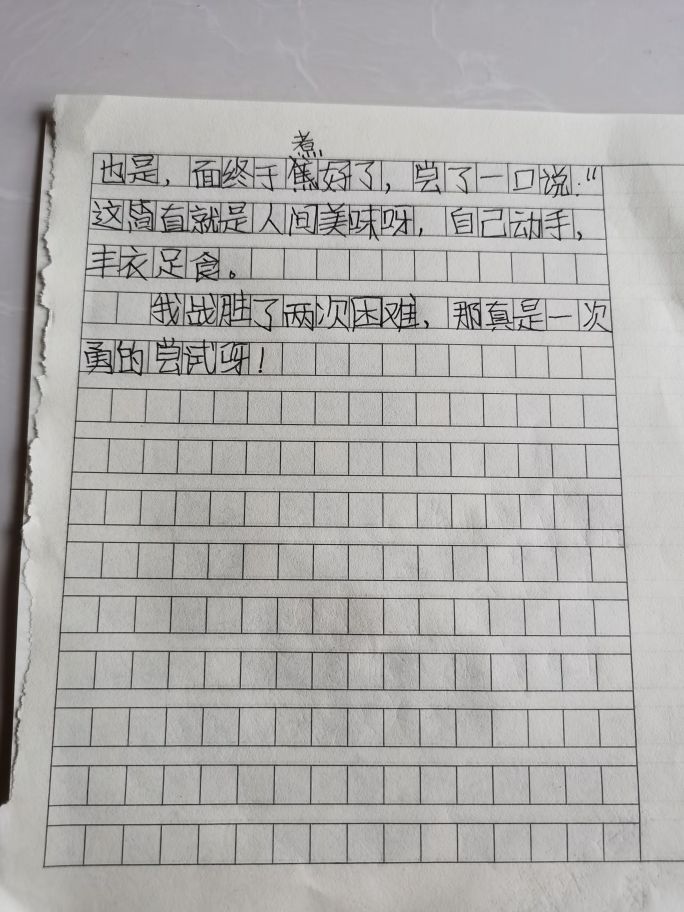 煮
也是，面终于蕉好了，尝了一口说：“
这简直就是人间美味呀，自己动手，
丰衣足食。
我战胜了两次困难，那真是一次
勇的尝试呀！